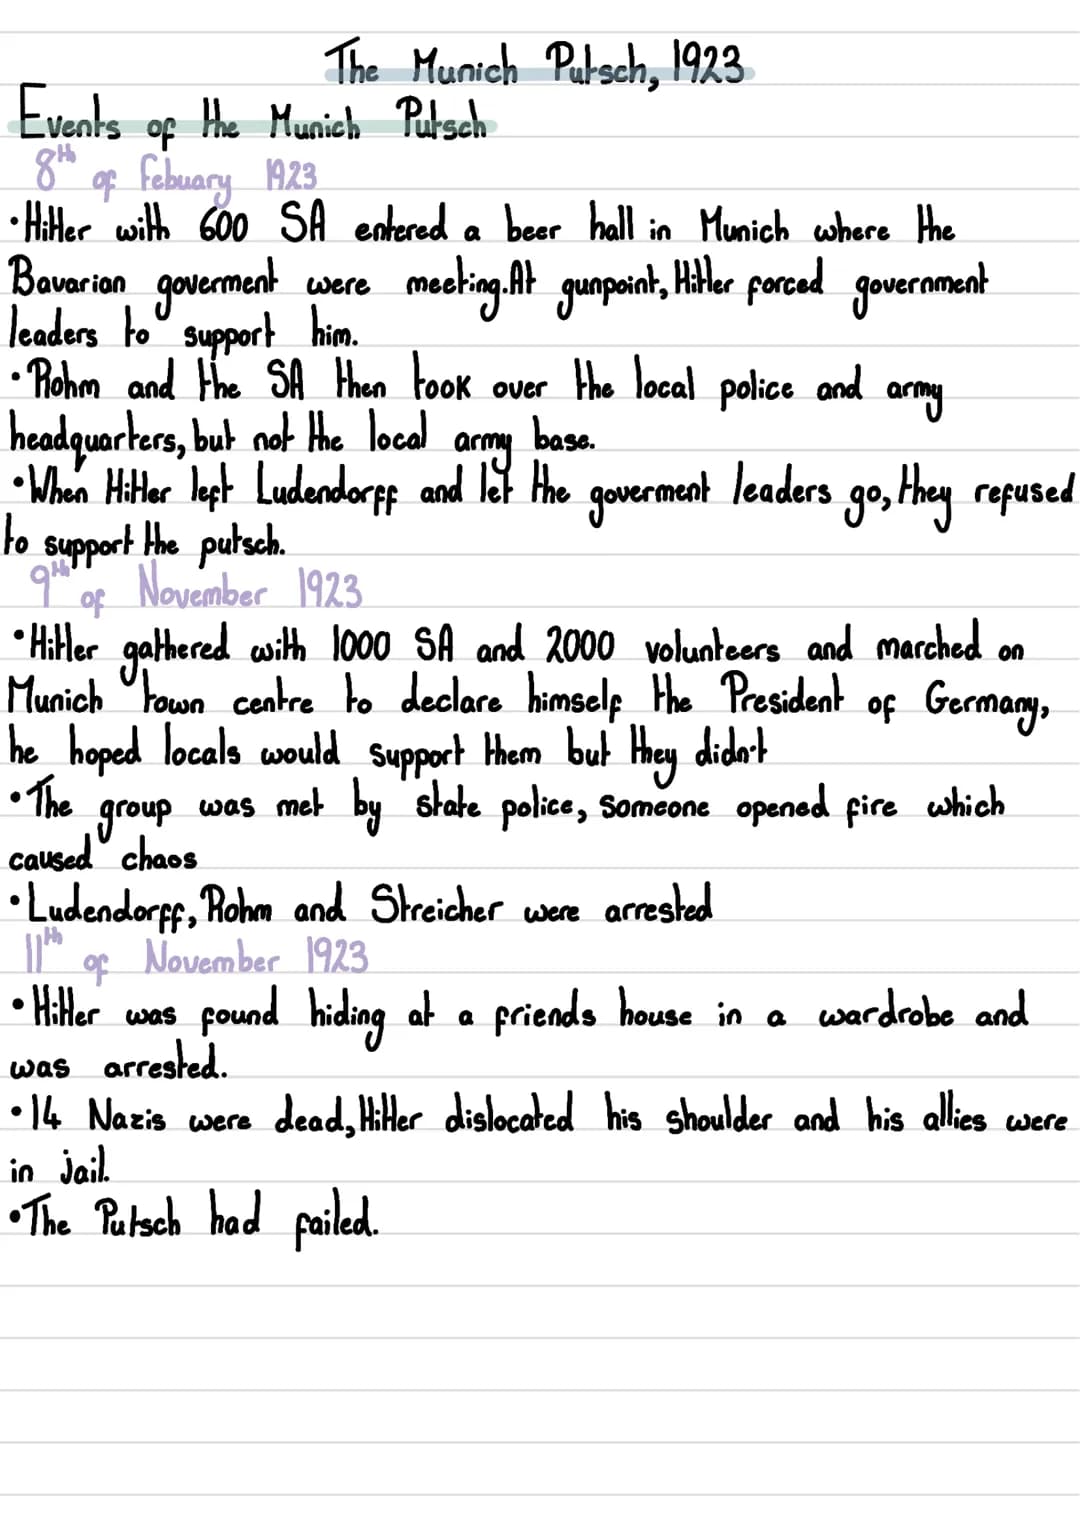 The Munich Putsch, 1923
Events of the Munich Putsch
8th of Febuary 1923
•Hitler with 600 SA entered a beer hall in Munich where the
Bavarian goverment were meeting.At gunpoint, Hitler forced government
leaders to support him.
•Rohm and the SA then took over the local police and army
headquarters, but not the local army base.
•When Hitler left Ludendorff and let the goverment leaders go, they refused
to support the putsch.
9th of November 1923
•Hitler gathered with 1000 SA and 2000 volunteers and marched on
Munich town centre to declare himself the President of Germany,
he hoped locals would support them but they didn't
•The group was met by state police, someone opened fire which
caused chaos
•Ludendorff, Rohm and Streicher were arrested
11th of November 1923
•Hitler was found hiding at a friends house in a wardrobe and
was arrested.
•14 Nazis were dead, Hitler dislocated his shoulder and his allies were
in jail.
•The Putsch had failed.